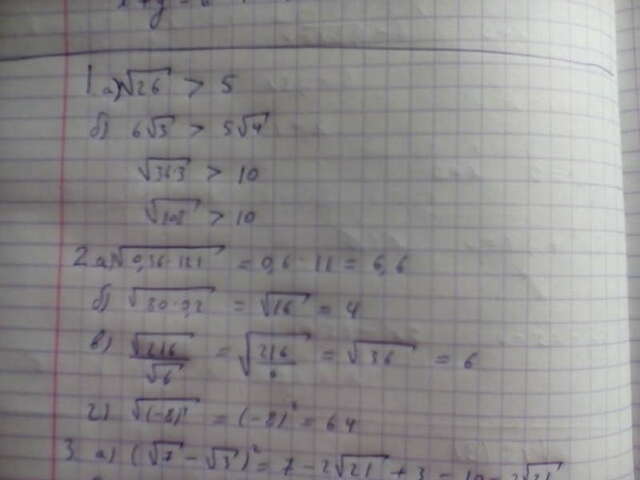 1 а) √26 > 5
б) 6√3 > 5√4
√36·3 > 10
√108 > 10
2 а) √0,36·121 = 0,6 · 11 = 6,6
б) √80·0,2 = √16 = 4
в) √216/√6 = √216/6 = √36 = 6
г) √(-8)⁴ = (-8)² = 64
3 а) (√7 - √3)² = 7 - 2√21 + 3 = 10 - 2√21